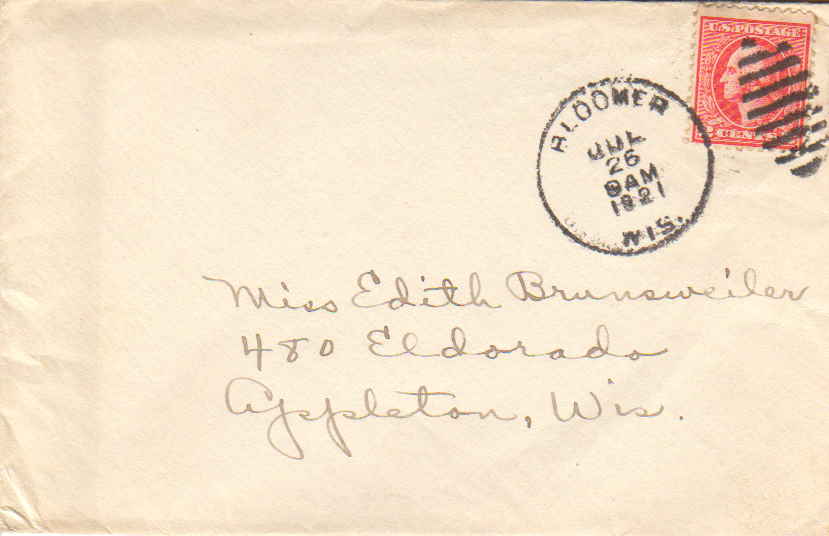 U.S. POSTAGE
CENTS
BLOOMER
JUL
26
1921
WIS.
Miss Edith Brunsweiler
480 Eldorado
Appleton, Wis.